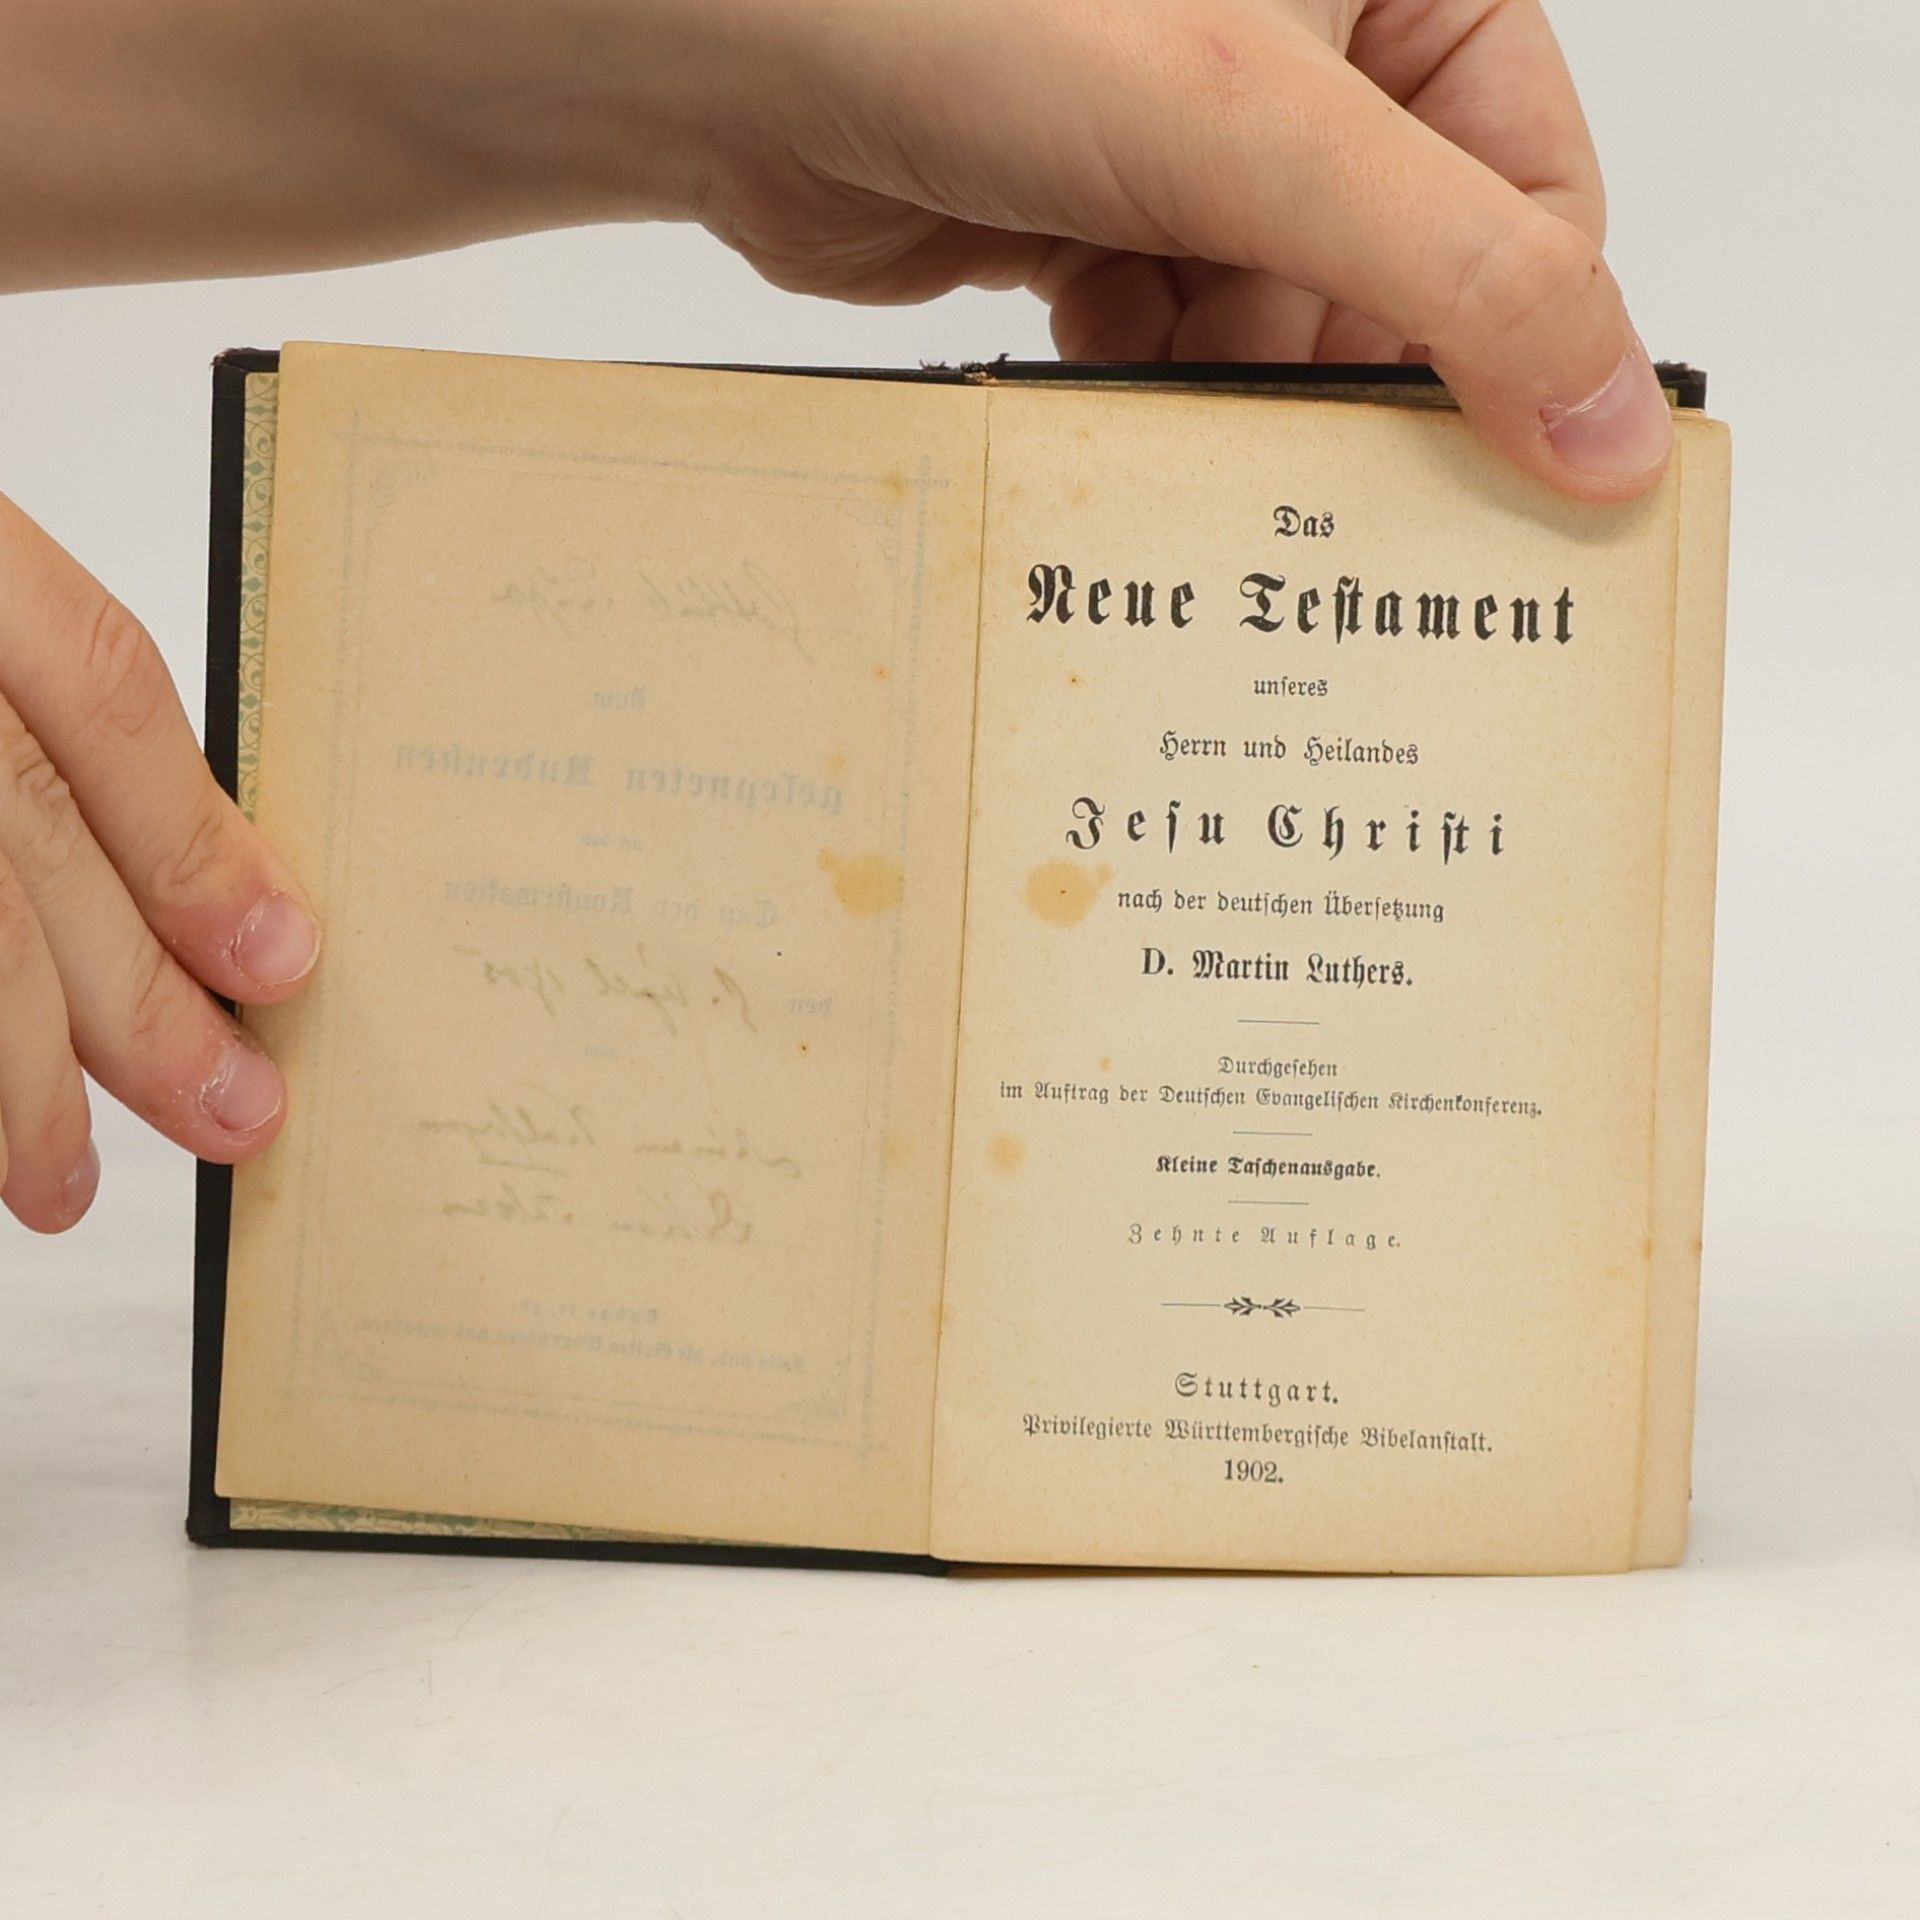 Zum
gesegneten Andenken
an den
Tag der Konfirmation
den
von
Das
Neue Teſtament
unſeres
Herrn und Heilandes
Jeſu Chriſti
nach der deutſchen Überſetzung
D. Martin Luthers.
Durchgeſehen
im Auftrag der Deutſchen Evangeliſchen Kirchenkonferenz.
Kleine Taſchenausgabe.
Zehnte Auflage.
Stuttgart.
Privilegierte Württembergiſche Bibelanſtalt.
1902.